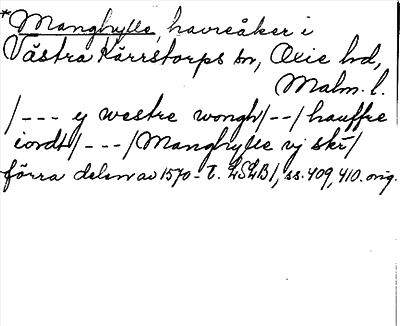 *Manghylle, havreåker i
Västra Kärrstorps sn, Oxie hd,
Malm. l.
/--- y westre wongh/--/hauffre
iordt/---/Manghylle vj skr̄/
förra delen av 1570-t. LSLB1, ss. 409, 410. orig.